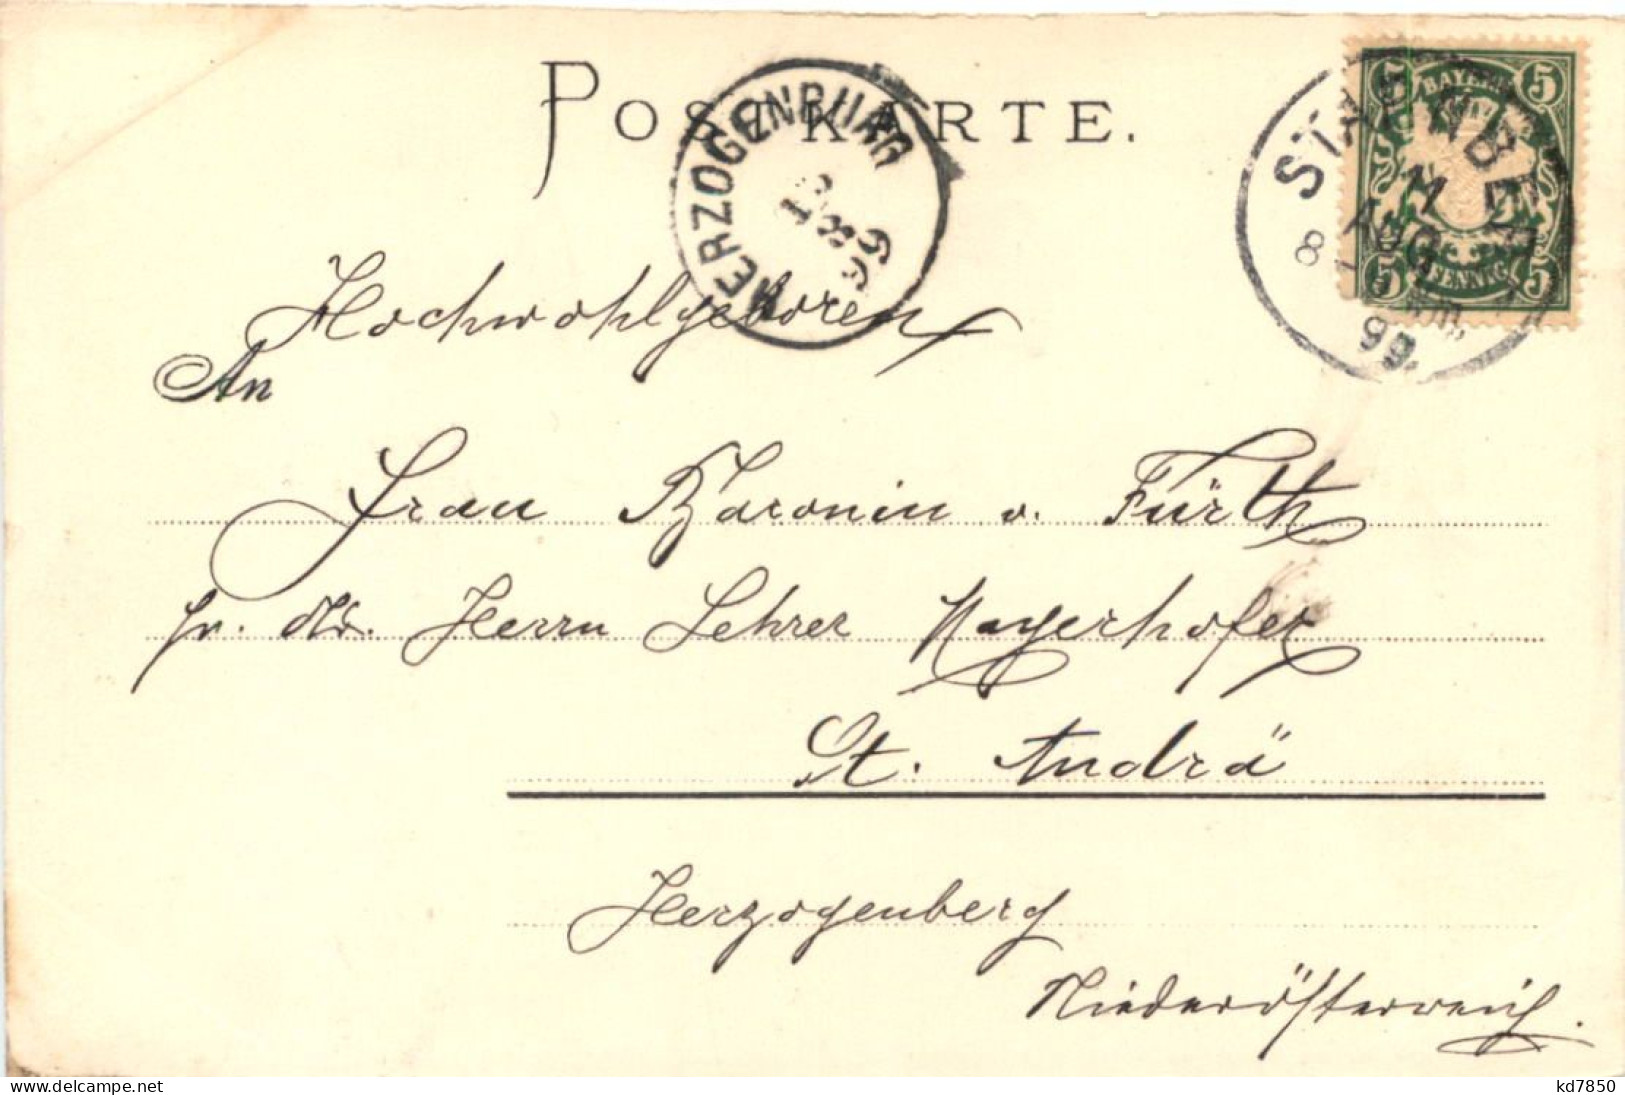 POSTKARTE.
HERZOGENBURG
13
8
99
STARNBERG
11
AUG
8
99
5 BAYERN 5
5 PFENNIG 5
Hochwohlgeboren
An
Frau Baronin v. Fürth
Herrn Lehrer Mayerhofer
St. Andrä
Herzogenberg
Niederösterreich.
kd7850